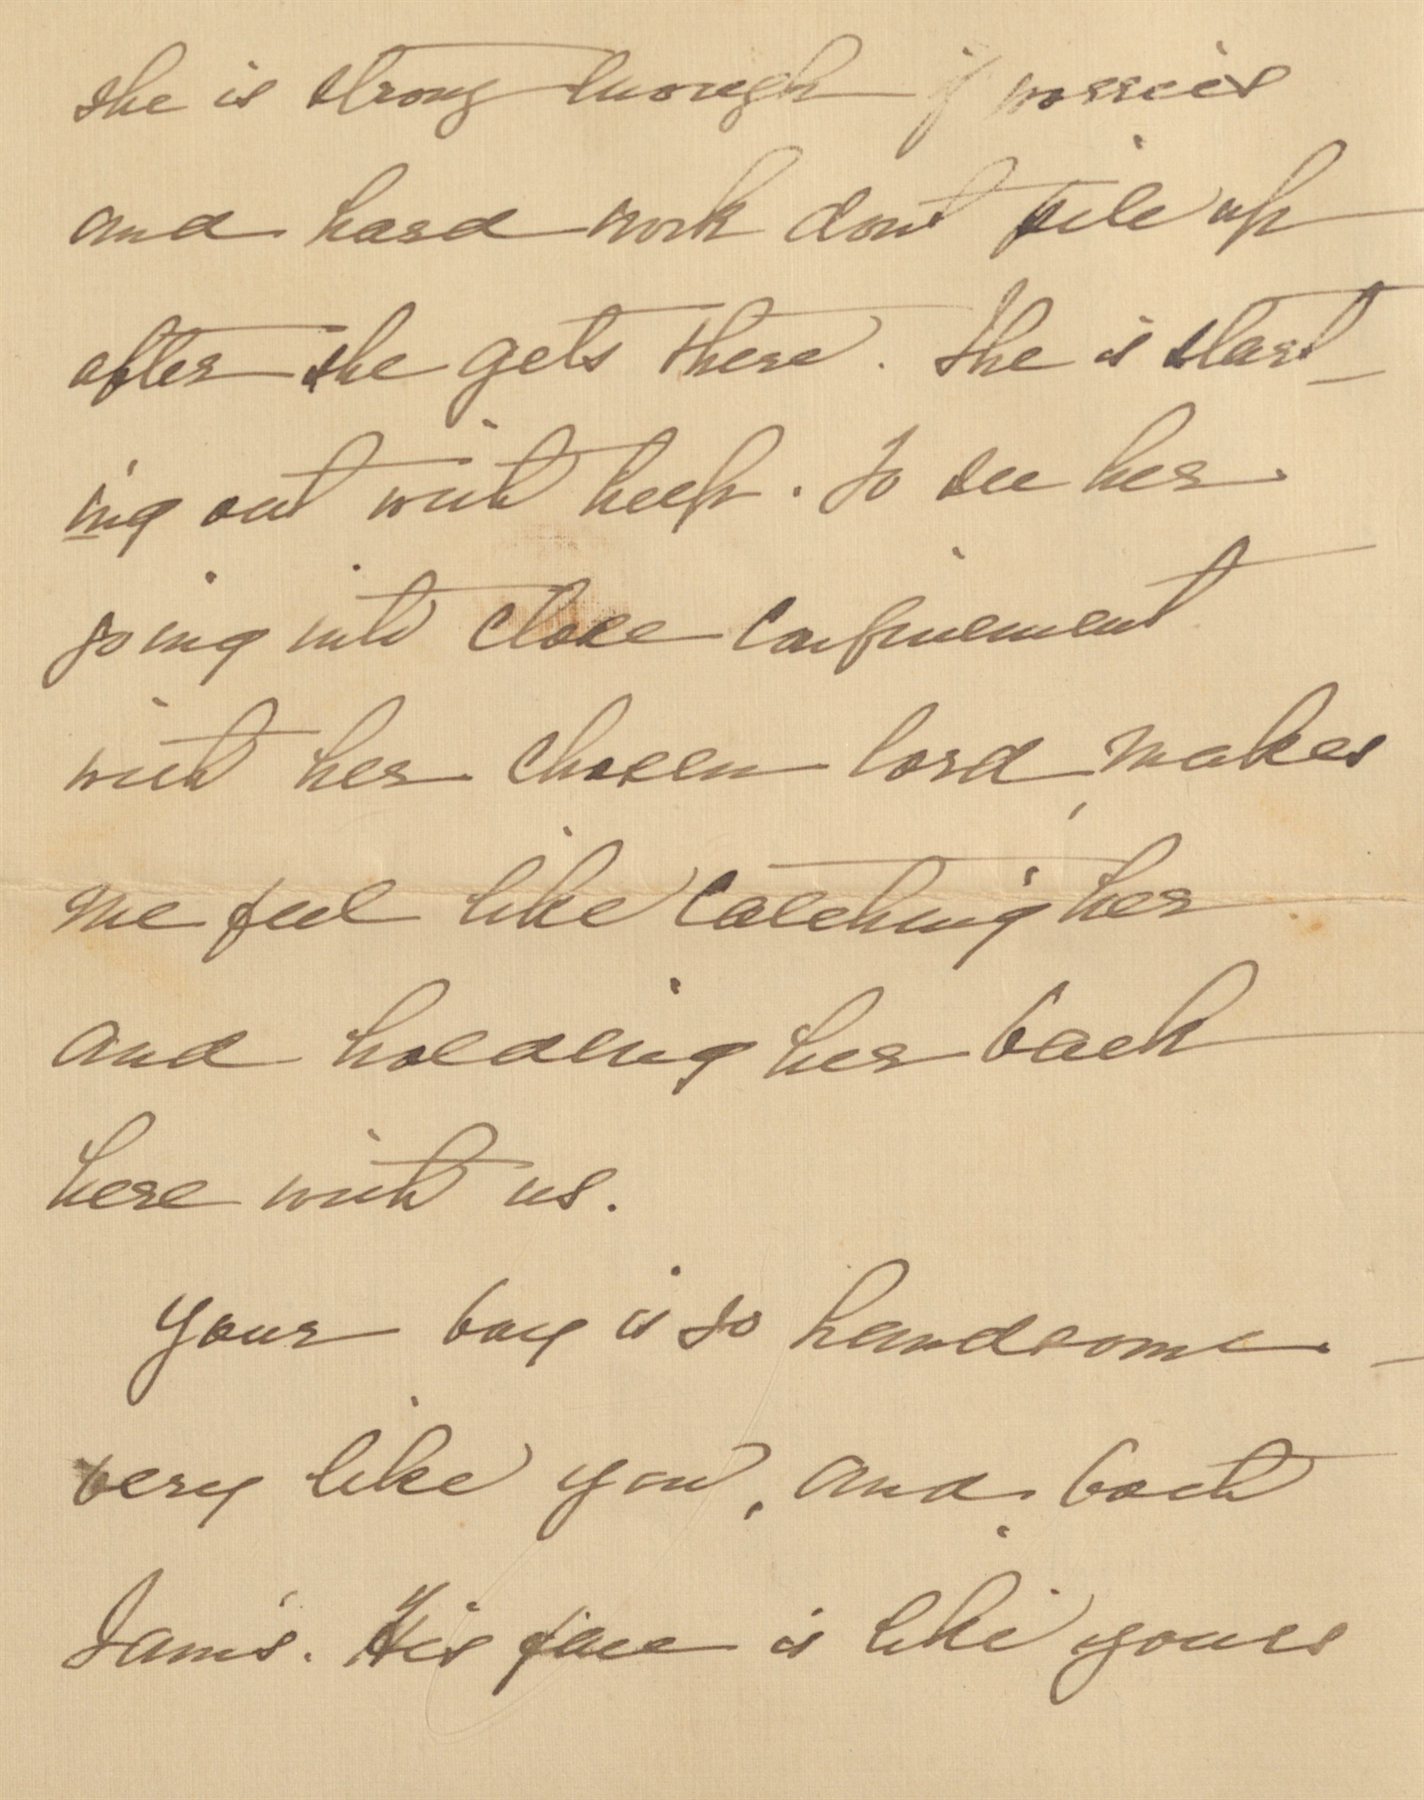 she is strong enough if worries
and hard work dont pile up
after she gets there. She is start-
ing out with help. To see her
going into close confinement
with her chosen lord, makes
me feel like catching her
and holding her back
here with us.
Your boy is so handsome -
very like you, and both
Sam's. His face is like yours